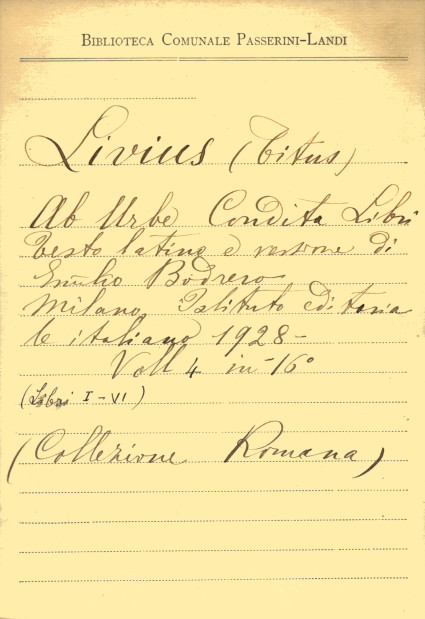 BIBLIOTECA COMUNALE PASSERINI-LANDI
Livius (Titus)
Ab Urbe Condita Libri
testo latino e versione di
Emilio Bodrero
Milano Istituto editoria
le italiano 1928-
Voll 4 in-16°
(Libri I-VI)
(Collezione Romana)